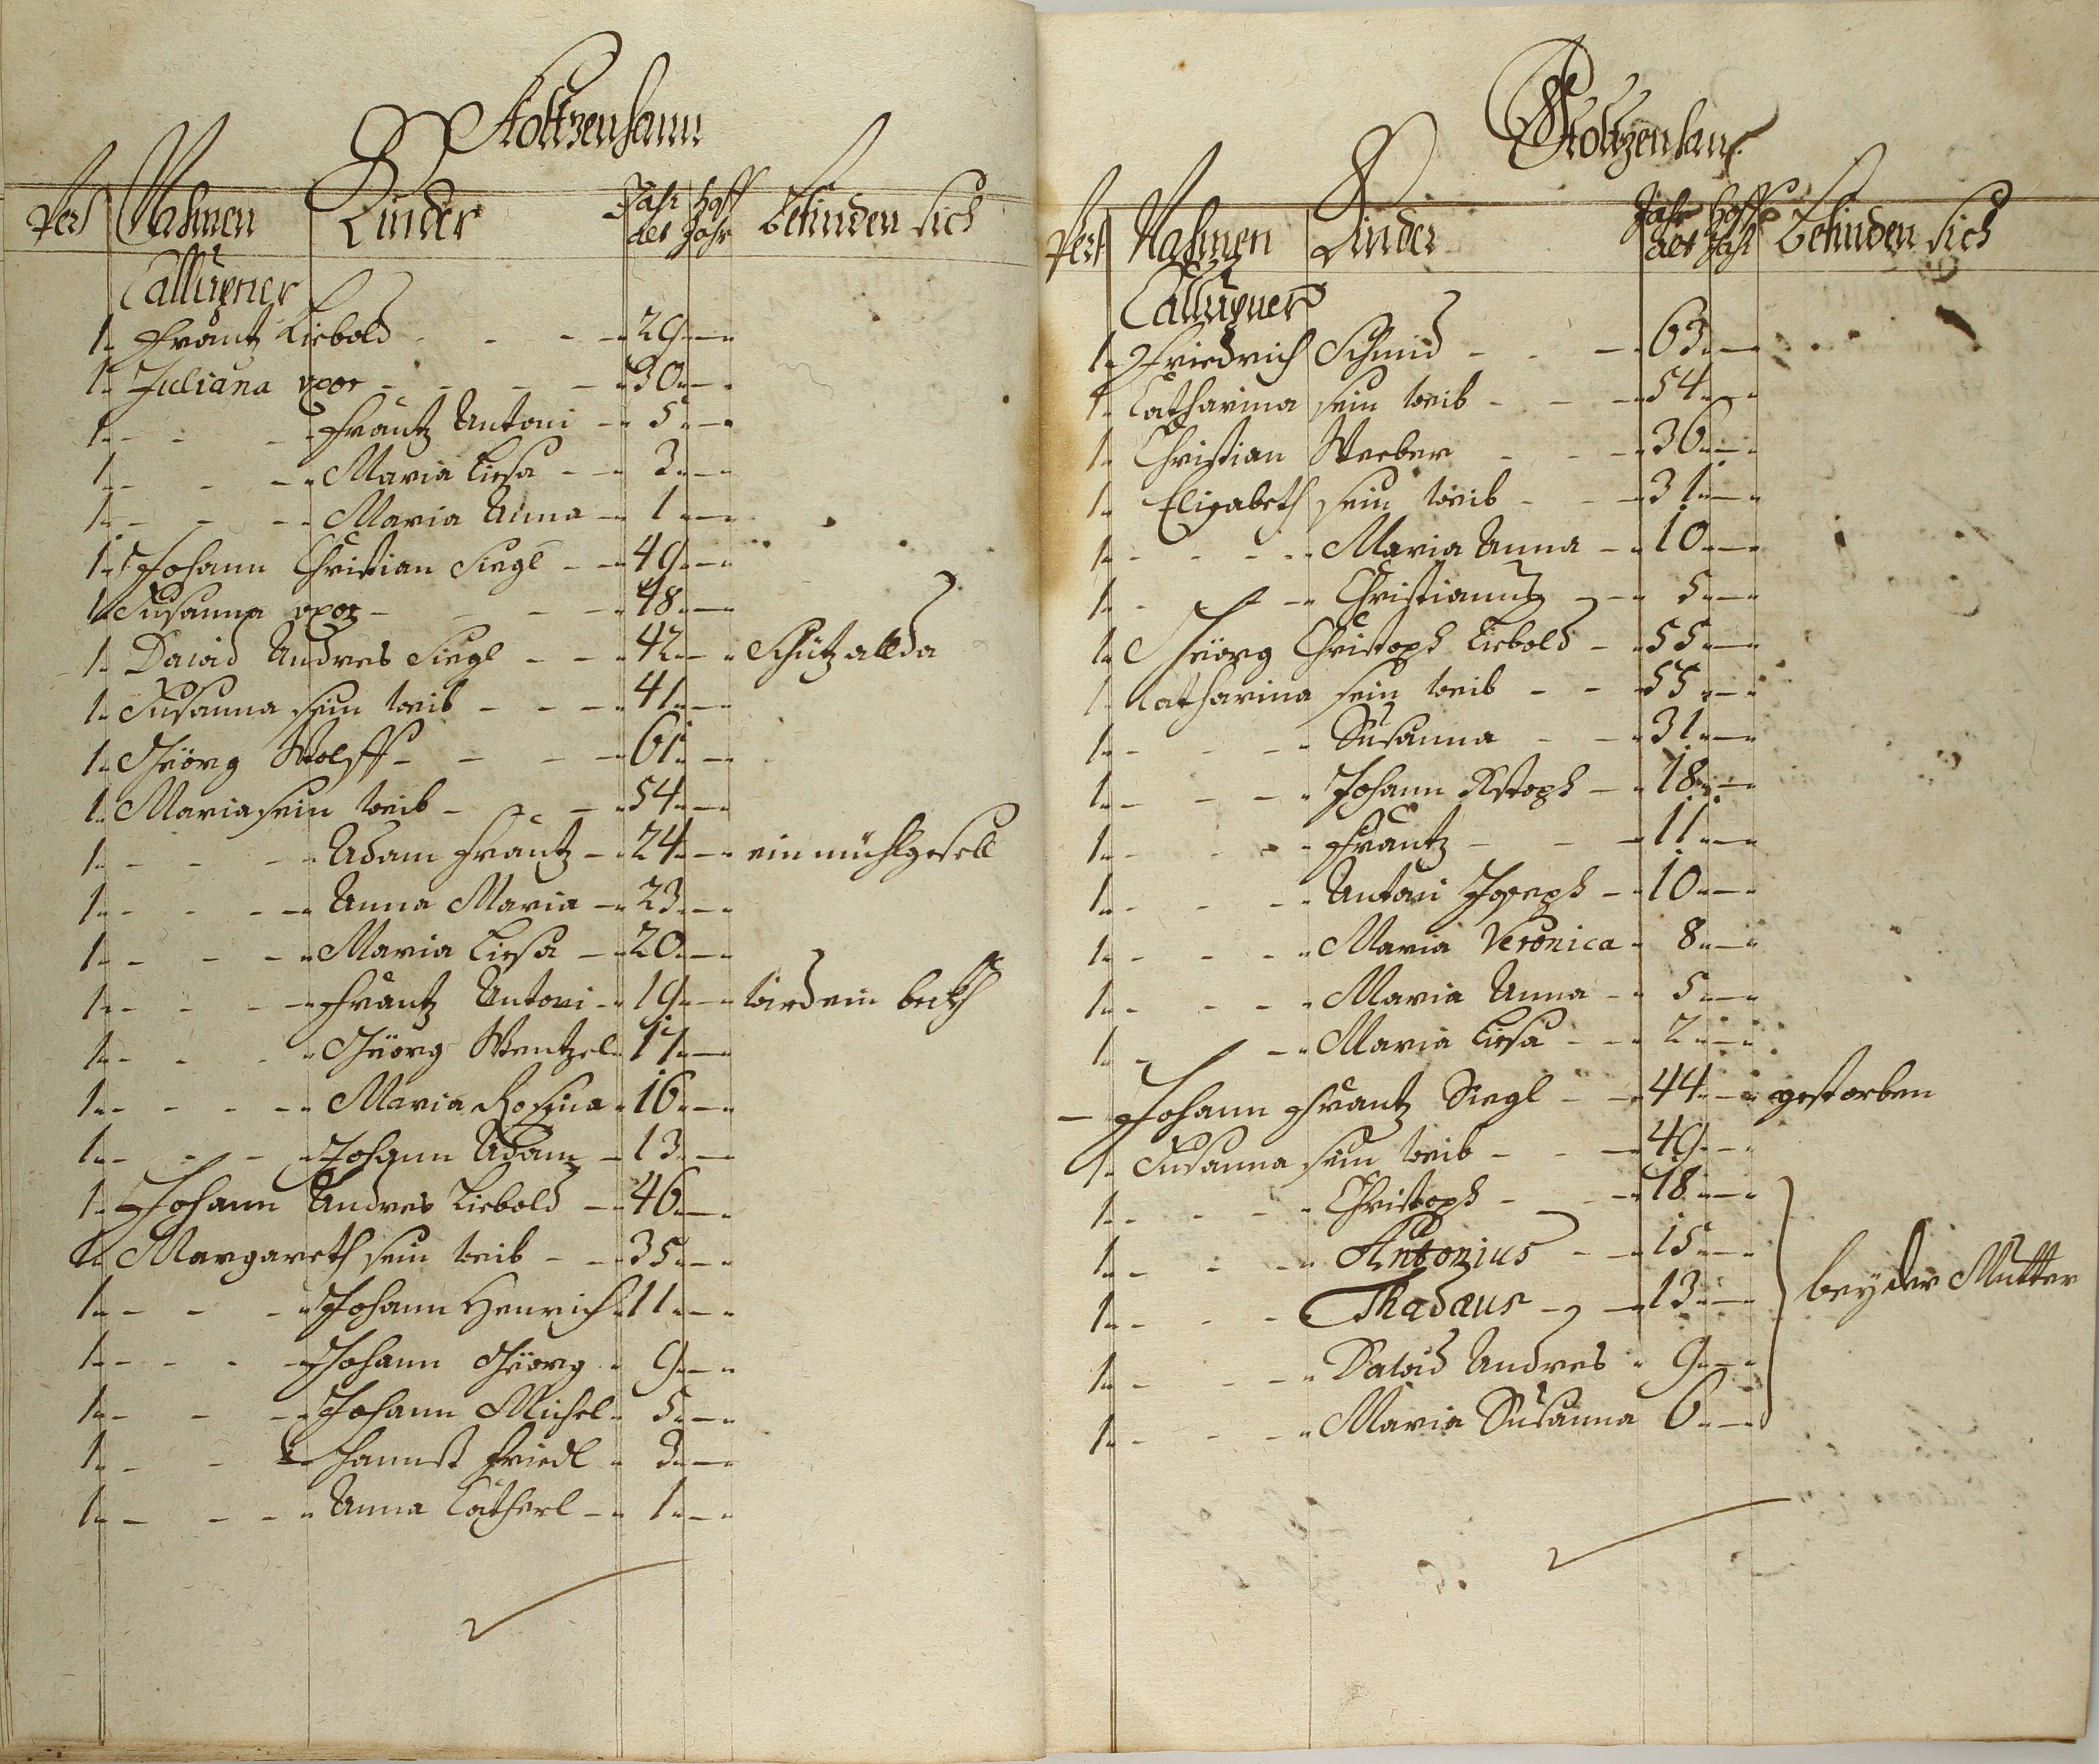 Stoltzenhann
Pers Nahmen Kinder Jahr alt Hoff Jahr befinden sich
Callupner
1 Frantz Liebold 29
1 Juliana uxor 30
1 Frantz Antoni 5
1 Maria Liesa 3
1 Maria Anna 1
1 Johann Christian Siegl 49
1 Susanna uxor 48
1 Dawid Andres Siegl 42 Schütz allda
1 Susanna sein weib 41
1 Geörg Wolff 61
1 Maria sein weib 54
1 Adam Frantz 24 ein mühlgesell
1 Anna Maria 23
1 Maria Liesa 20
1 Frantz Antoni 19 wird ein beckh
1 Geörg Wentzel 17
1 Maria Rosina 16
1 Johann Adam 13
1 Johann Andres Liebold 46
1 Margareth sein weib 35
1 Johann Henrich 11
1 Johann Geörg 9
1 Johann Michel 5
1 Hannß Friedl 3
1 Anna Catherl 1
Stoltzenhan
Pers Nahmen Kinder Jahr alt Hoff Jahr befinden sich
Callupner
1 Friedrich Schmid 63
1 Catharina sein weib 54
1 Christian Weeber 36
1 Elisabeth sein weib 31
1 Maria Anna 10
1 Christianus 5
1 Geörg Christoph Liebold 55
1 Catharina sein weib 55
1 Susanna 31
1 Johann Xstoph 18
1 Frantz 11
1 Antoni Joseph 10
1 Maria Veronica 8
1 Maria Anna 5
1 Maria Liesa 2
– Johann Frantz Siegl 44 gestorben
1 Susanna sein weib 49
1 Christoph 18
1 Antonius 15
1 Thadaeus 13 bey der Mutter
1 Dawid Andres 9
1 Maria Susanna 6